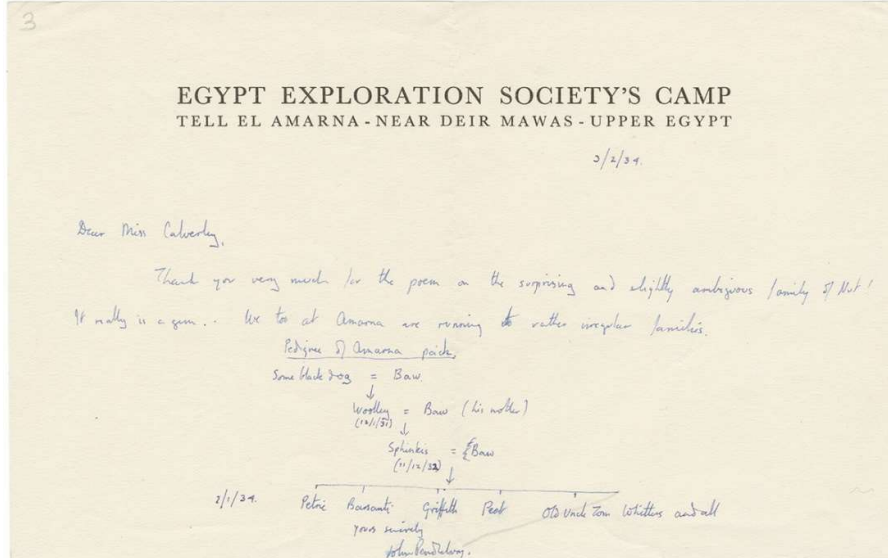 3
EGYPT EXPLORATION SOCIETY'S CAMP
TELL EL AMARNA - NEAR DEIR MAWAS - UPPER EGYPT
3/2/34.
Dear Miss Calverley,
Thank you very much for the poem on the surprising and slightly ambiguous family of Nut!
It really is a gem.. We too at Amarna are running to rather irregular families.
Pedigree of Amarna pack.
Some black dog = Baw.
↓
Woolley = Baw (his mother)
(12/1/31) ↓
Sphinkis = Baw
(11/12/32)
↓
2/1/34. Petrie Barsanti Griffith Peet Old Uncle Tom Whittemore and all
yours sincerely
John Pendlebury.